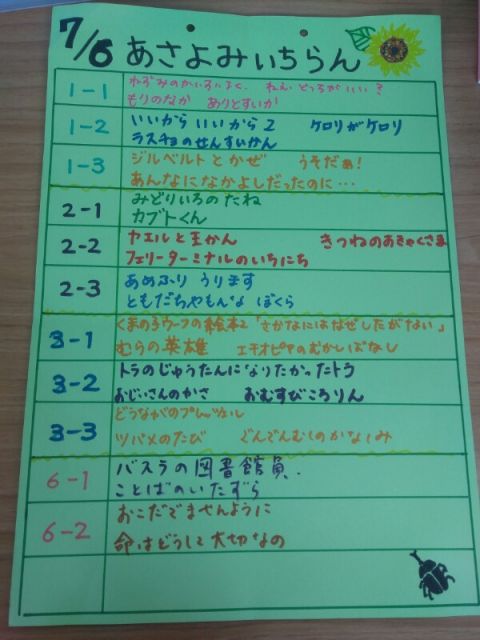 7/6 あさよみいちらん
1-1 ねずみのかいすいよく. ねえ どっちがいい?
もりのなか ありとすいか
1-2 いいからいいから2 ケロリがケロリ
ラスチョのせんすいかん
1-3 ジルベルトとかぜ うそだぁ!
あんなになかよしだったのに…
2-1 みどりいろのたね
カブトくん
2-2 ヤエルと王かん きつねのおきゃくさま
フェリーターミナルのいちにち
2-3 あめふり うります
ともだちやもんな ぼくら
3-1 くまの子ウーフの絵本2「さかなにはなぜしたがない」
むらの英雄 エチオピアのむかしばなし
3-2 トラのじゅうたんになりたかったトラ
おじいさんのかさ おむすびころりん
3-3 どうながのプレッツェル
ツバメのたび でんでんむしのかなしみ
6-1 バスラの図書館員.
ことばのいたずら
6-2 おこだでませんように
命はどうして大切なの